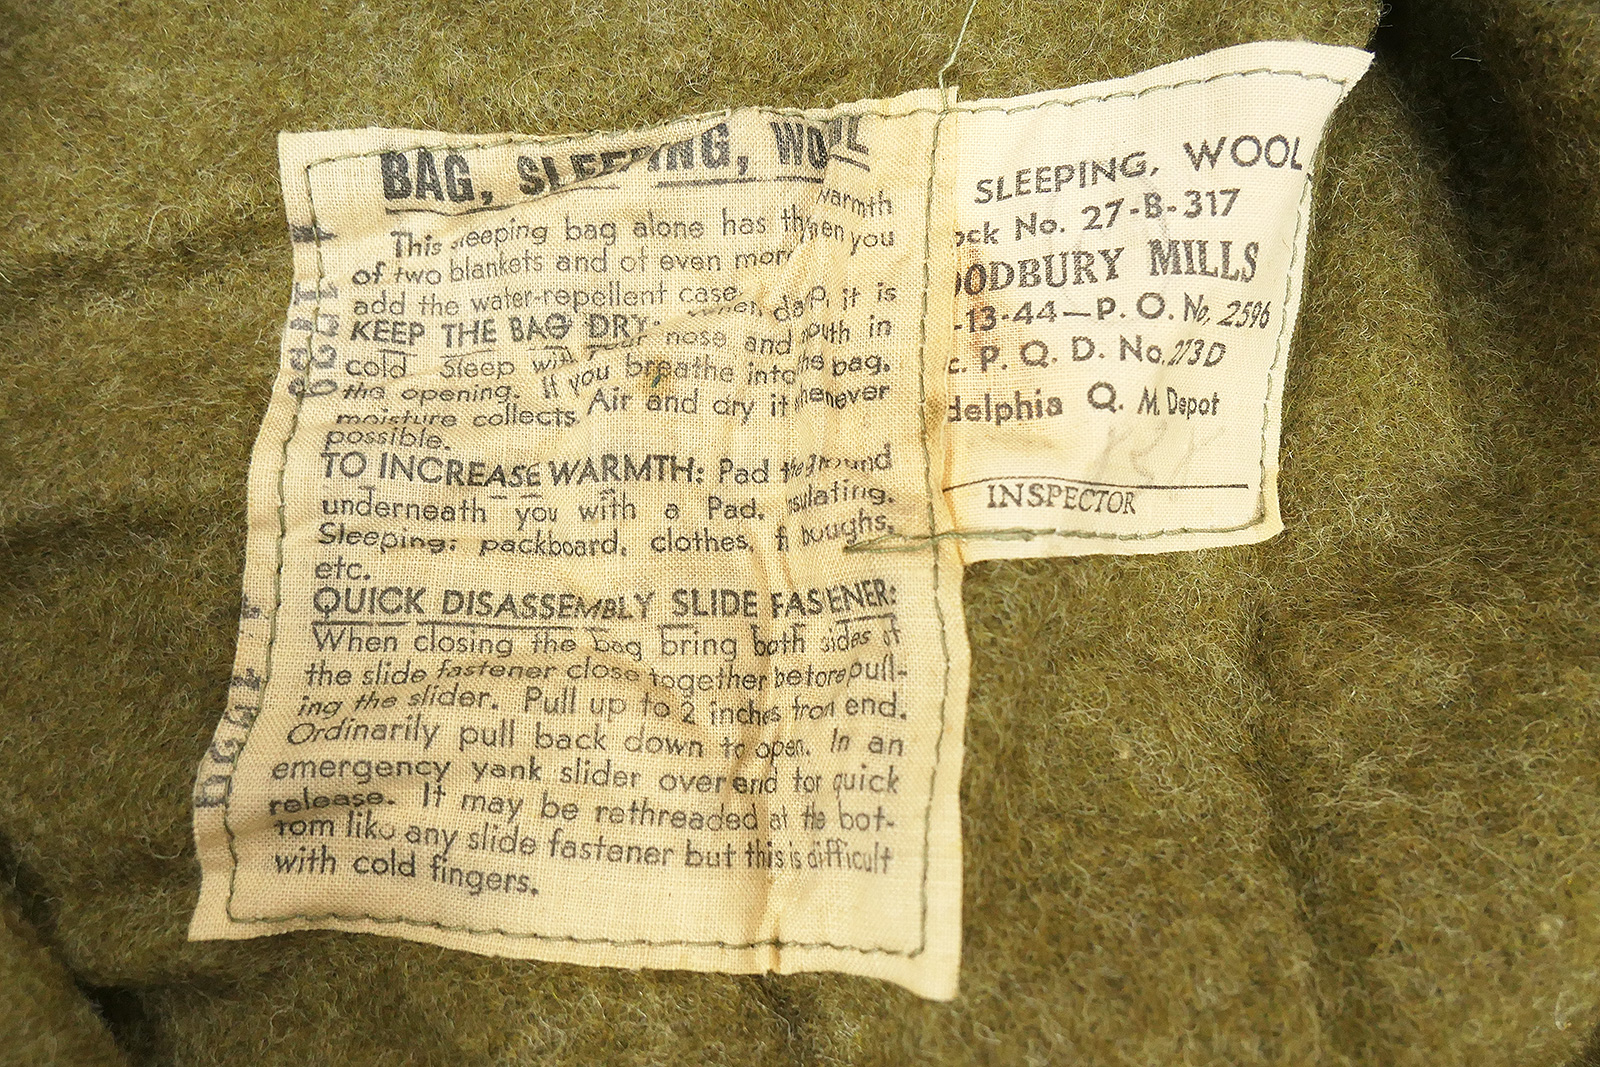 BAG, SLEEPING, WOOL
This sleeping bag alone has the warmth
of two blankets and of even more when you
add the water-repellent case.
KEEP THE BAG DRY: When damp, it is
cold. Sleep with your nose and mouth in
the opening. If you breathe into the bag,
moisture collects. Air and dry it whenever
possible.
TO INCREASE WARMTH: Pad the ground
underneath you with a Pad, insulating,
Sleeping; packboard, clothes, boughs,
etc.
QUICK DISASSEMBLY SLIDE FASTENER:
When closing the bag bring both sides of
the slide fastener close together before pull-
ing the slider. Pull up to 2 inches from end.
Ordinarily pull back down to open. In an
emergency yank slider over end for quick
release. It may be rethreaded at the bot-
tom like any slide fastener but this is difficult
with cold fingers.
SLEEPING, WOOL
ock No. 27-B-317
OODBURY MILLS
-13-44—P. O. No. 2596
c. P. Q. D. No. 273D
delphia Q. M. Depot
INSPECTOR